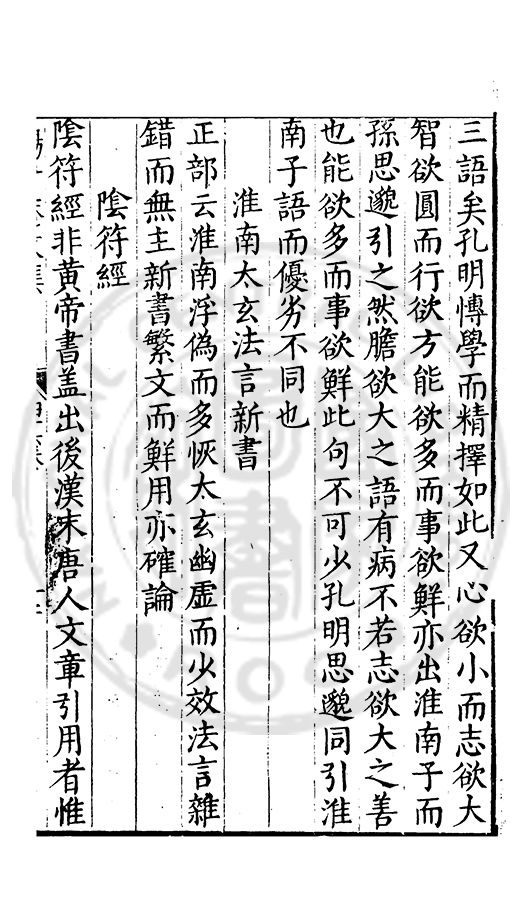 三語矣孔明愽學而精擇如此又心欲小而志欲大
智欲圓而行欲方能欲多而事欲鮮亦出淮南子而
孫思邈引之然膽欲大之語有病不若志欲大之善
也能欲多而事欲鮮此句不可少孔明思邈同引淮
南子語而優劣不同也
淮南太玄法言新書
正部云淮南浮偽而多恢太玄幽虛而少效法言雜
錯而無主新書繁文而鮮用亦確論
陰符經
陰符經非黄帝書盖出後漢末唐人文章引用者惟